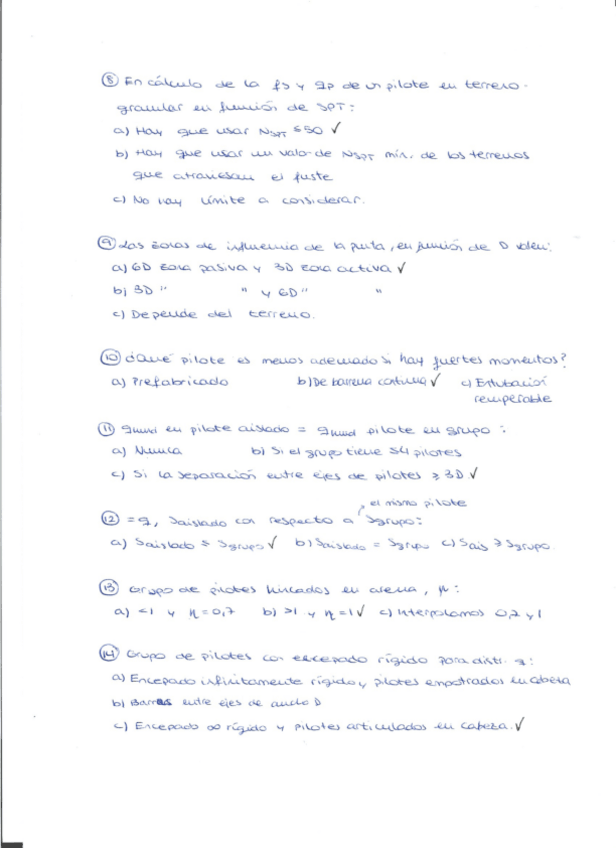 ⑧ En cálculo de la fs y qp de un pilote en terreno
granular en función de SPT:
a) Hay que usar NSPT ≤50 ✓
b) Hay que usar un valor de NSPT mín. de los terrenos
que atraviesan el fuste
c) No hay límite a considerar.
⑨ Las zonas de influencia de la punta, en función de D valen:
a) 6D zona pasiva y 3D zona activa ✓
b) 3D " " y 6D " "
c) Depende del terreno.
⑩ ¿Qué pilote es menos adecuado si hay fuertes momentos?
a) Prefabricado b) De barrena continua ✓ c) Entubación
recuperable
⑪ qhund en pilote aislado = qhund pilote en grupo :
a) Nunca b) Si el grupo tiene ≤4 pilotes
c) Si la separación entre ejes de pilotes ≥ 3D ✓
el mismo pilote
⑫ = q, Saislado con respecto a Sgrupo:
a) Saislado ≤ Sgrupo ✓ b) Saislado = Sgrupo c) Sais ≥ Sgrupo
⑬ Grupo de pilotes hincados en arena, η:
a) <1 y η=0,7 b) >1 y η=1 ✓ c) Interpolamos 0,7 y 1
⑭ Grupo de pilotes con encepado rígido para distr. q:
a) Encepado infinitamente rígido y pilotes empotrados en cabeza
b) Barras entre ejes de ancho D
c) Encepado ∞ rígido y pilotes articulados en cabeza. ✓